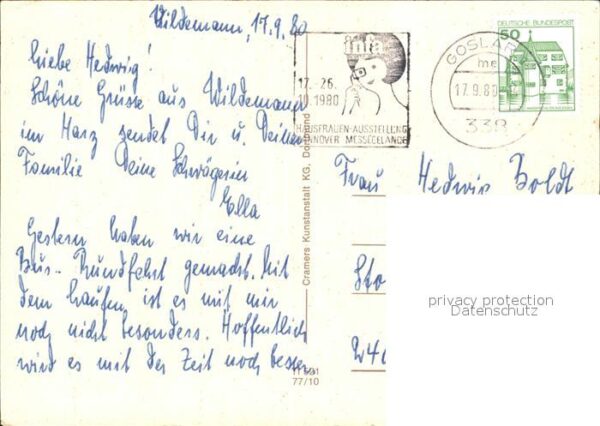 Wildemann, 17.9.80
Liebe Hedwig!
Schöne Grüsse aus Wildemann
im Harz sendet Dir u. Deiner
Familie Deine Schwägerin
Ella
Gestern haben wir eine
Bus-Rundfahrt gemacht. Mit
dem laufen ist es mit mir
noch nicht besonders. Hoffentlich
wird es mit der Zeit noch besser.
infa
17.-26.
1980
HAUSFRAUEN-AUSSTELLUNG
HANNOVER MESSEGELÄNDE
GOSLAR
17.9.80
338
DEUTSCHE BUNDESPOST
50
Cramers Kunstanstalt KG, Dortmund
77/10
Frau Hedwig Boldt
Sto
24
privacy protection
Datenschutz